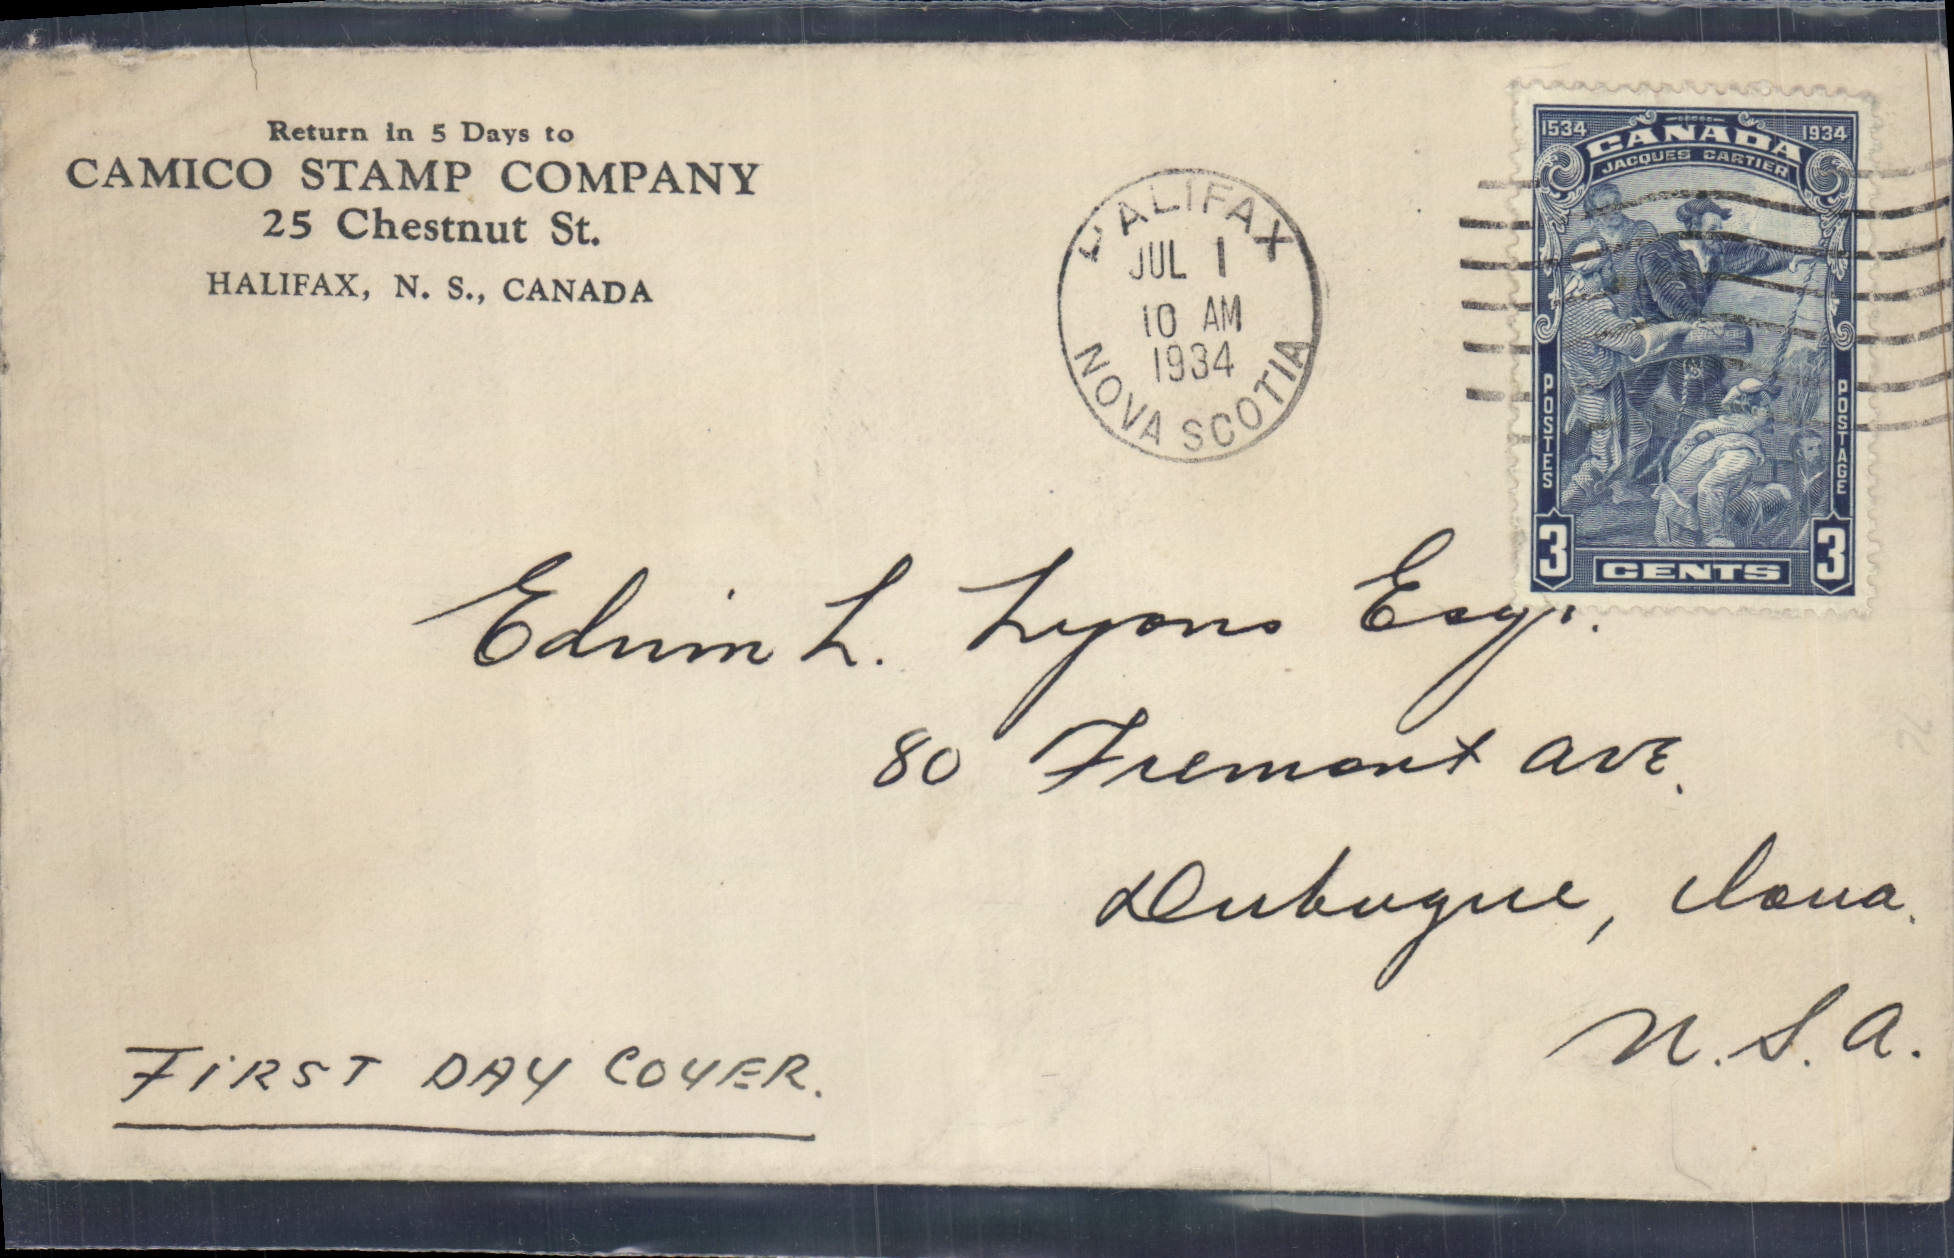 Return in 5 Days to
CAMICO STAMP COMPANY
25 Chestnut St.
HALIFAX, N. S., CANADA
HALIFAX
JUL 1
10 AM
1934
NOVA SCOTIA
1534 CANADA 1934
JACQUES CARTIER
POSTES
POSTAGE
3 CENTS 3
Edwin L. Lyons Esqr.
80 Fremont Ave.
Dubuque, Iowa.
U.S.A.
FIRST DAY COVER.